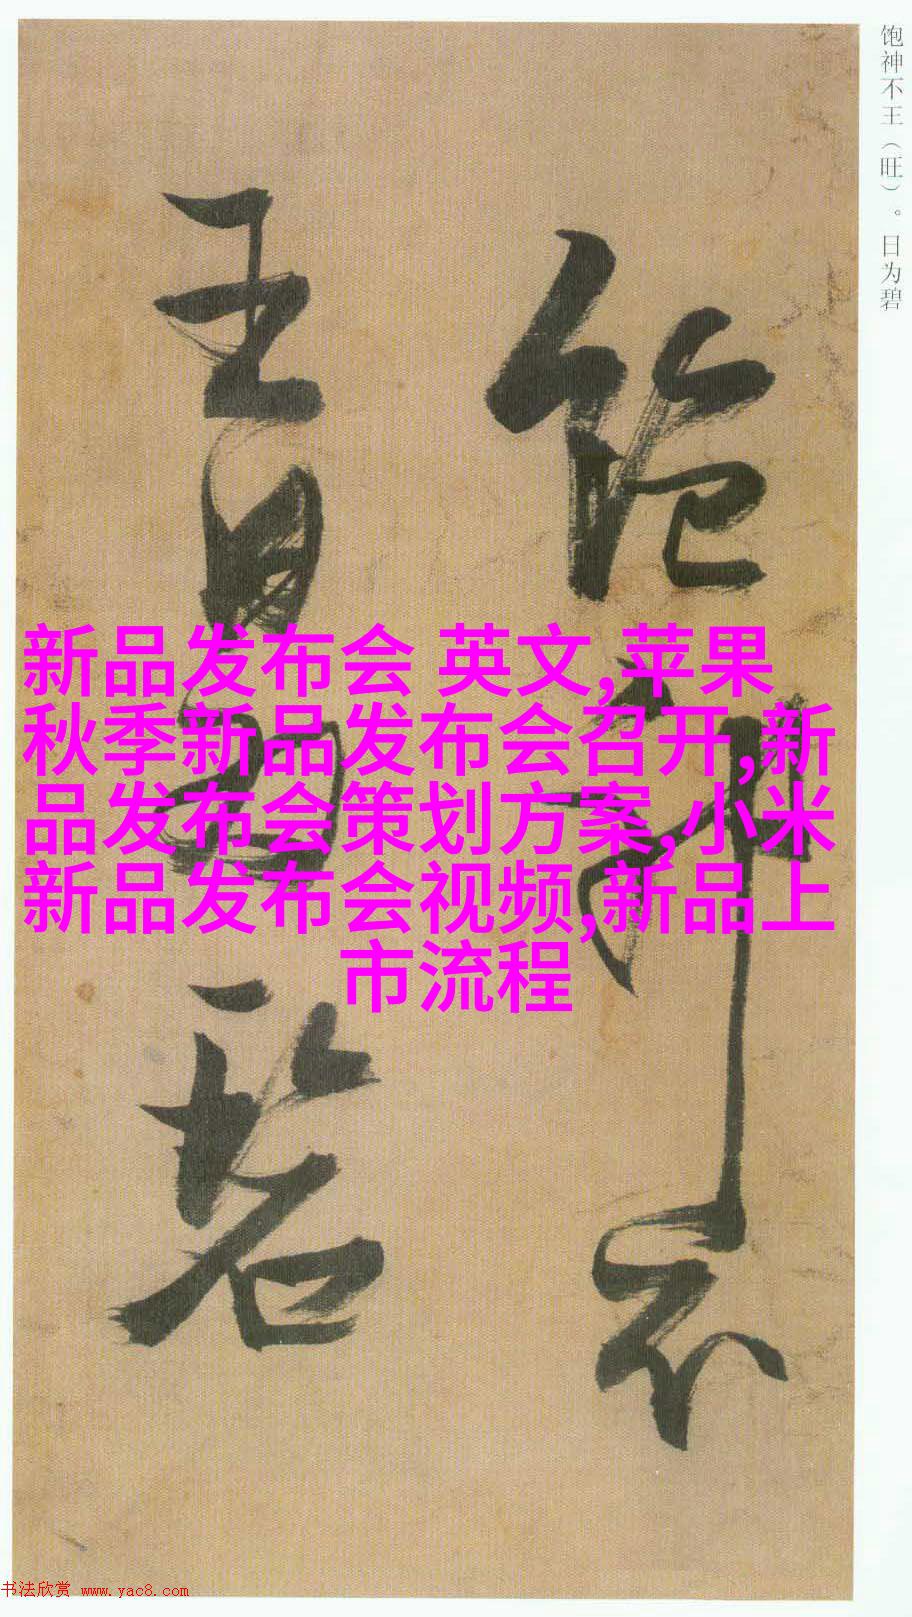 饱神不王（旺）。日为碧
饱神不
王日为碧
新品发布会 英文,苹果
秋季新品发布会召开,新
品发布会策划方案,小米
新品发布会视频,新品上
市流程
书法欣赏 www.yac8.com